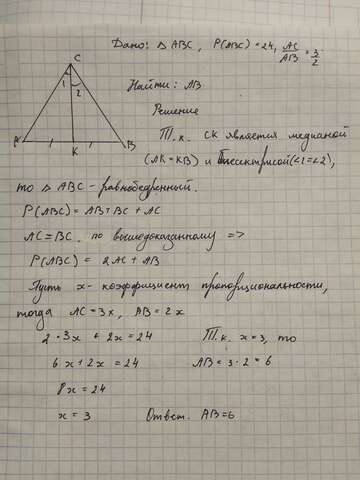 Дано: △ ABC, P(ABC) = 24, AC/AB = 3/2
Найти: AB
Решение
Т.к. CK является медианой
(AK = KB) и биссектрисой (∠1=∠2),
то △ ABC - равнобедренный.
P(ABC) = AB + BC + AC
AC = BC. по вышедоказанному =>
P(ABC) = 2AC + AB
Пусть x - коэффициент пропорциональности,
тогда AC = 3x, AB = 2x
2 · 3x + 2x = 24
6x + 2x = 24
8x = 24
x = 3
Т.к. x = 3, то
AB = 3 · 2 = 6
Ответ. AB = 6
C
1
2
A
K
B